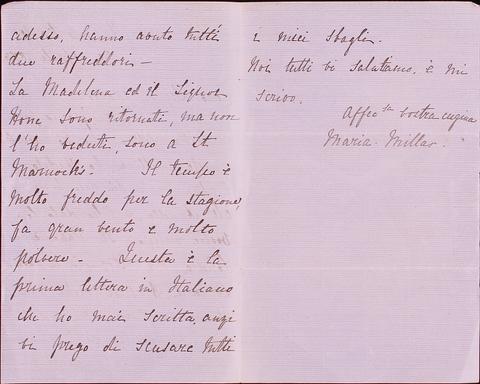 adesso, hanno avuto tutti
due raffreddori —
La Madelena ed il Signor
Hone sono ritornati, ma non
l'ho veduti, sono a St
Marnock's. Il tempo è
molto freddo per la stagione,
fa gran vento e molto
polvere - Questa è la
prima lettera in Italiano
che ho mai scritta, anzi
vi prego di scusare tutti
i miei sbagli.
Noi tutti vi salutiamo, e mi
scrivo.
Affec.ta vostra cugina
Maria Millar.